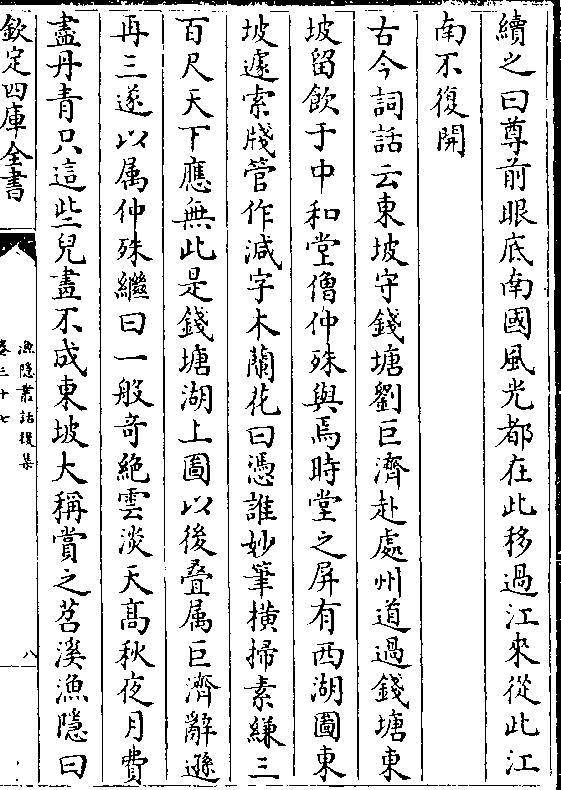 續之曰尊前眼底南國風光都在此移過江來從此江
南不復開
古今詞話云東坡守錢塘劉巨濟赴處州道過錢塘東
坡留飲于中和堂僧仲殊與焉時堂之屏有西湖圖東
坡遽索牋管作減字木蘭花曰憑誰妙筆横掃素縑三
百尺天下應無此是錢塘湖上圖以後疊属巨濟辭遜
再三遂以属仲殊繼曰一般奇絶雲淡天髙秋夜月費
盡丹青只這些兒畫不成東坡大稱賞之苕溪漁隱曰
欽定四庫全書
漁隱叢話後集
卷三十七
八